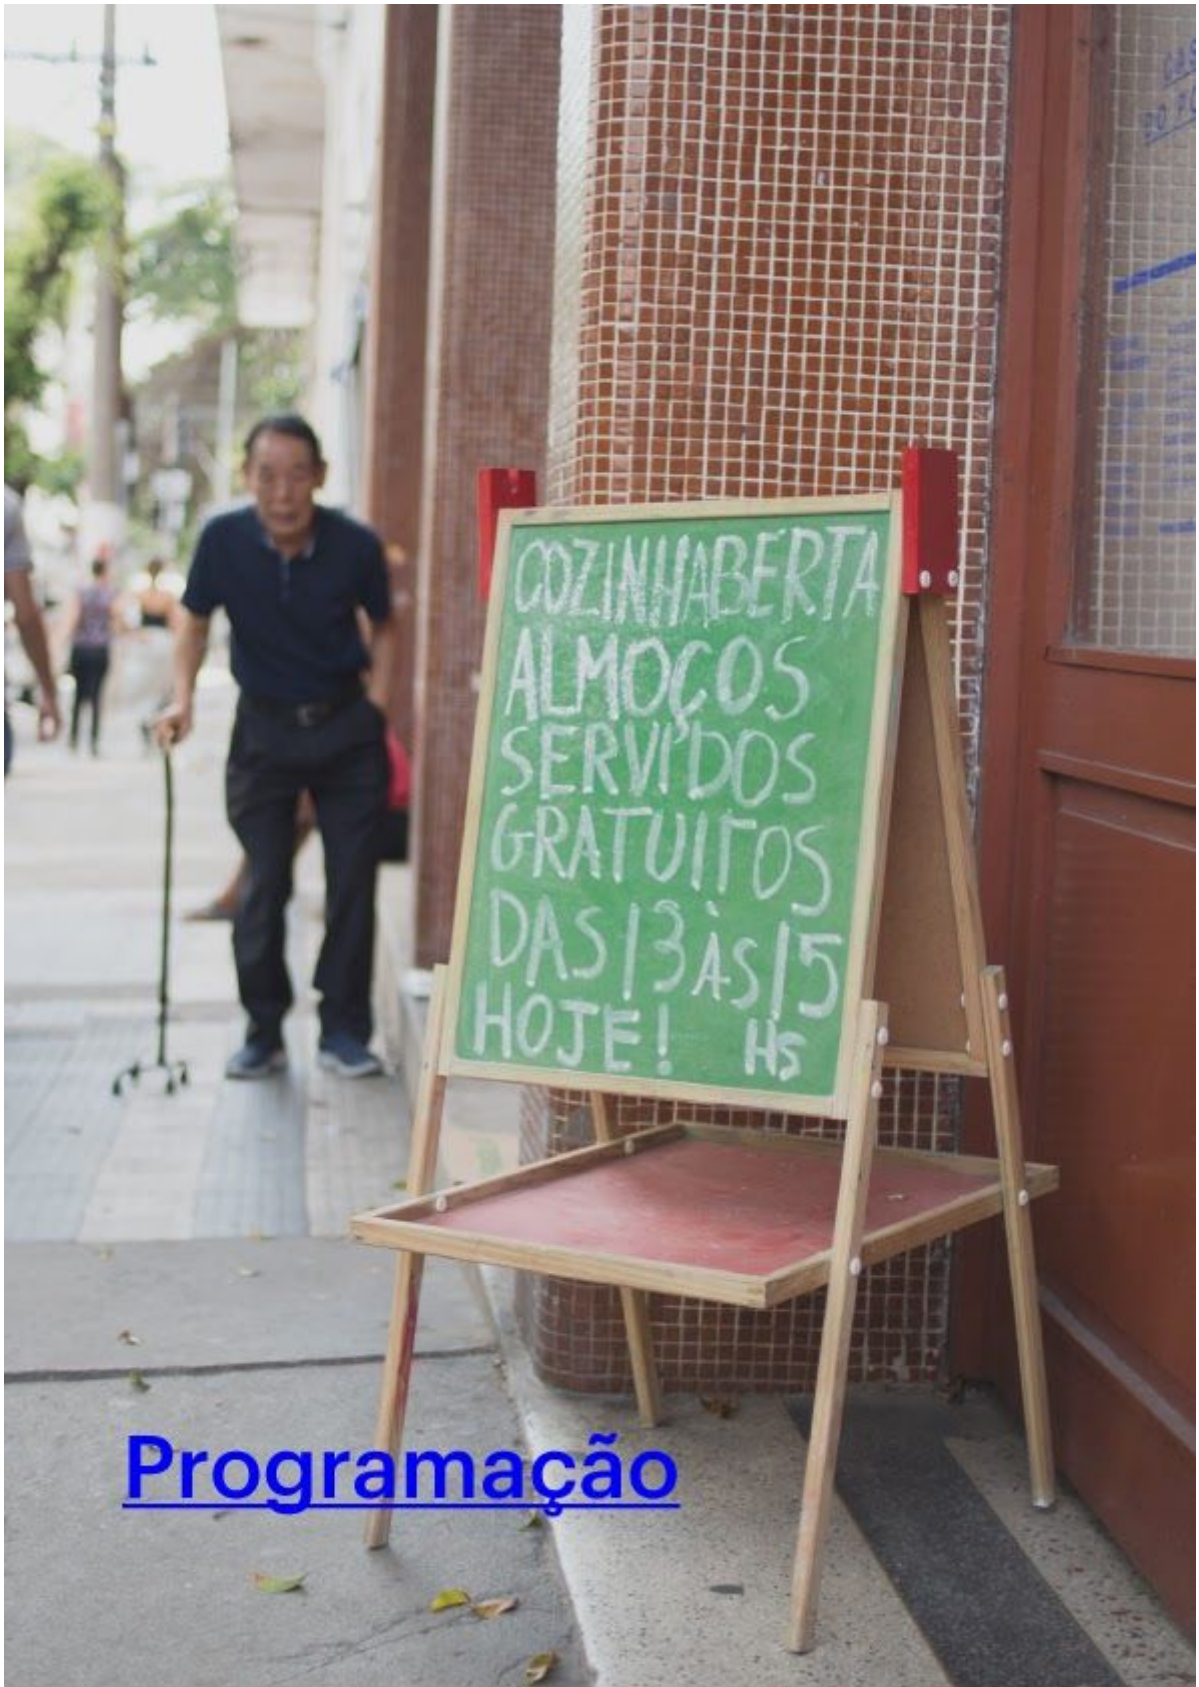 COZINHABERTA
ALMOÇOS
SERVIDOS
GRATUITOS
DAS 13 ÀS 15
HOJE! Hs
Programação